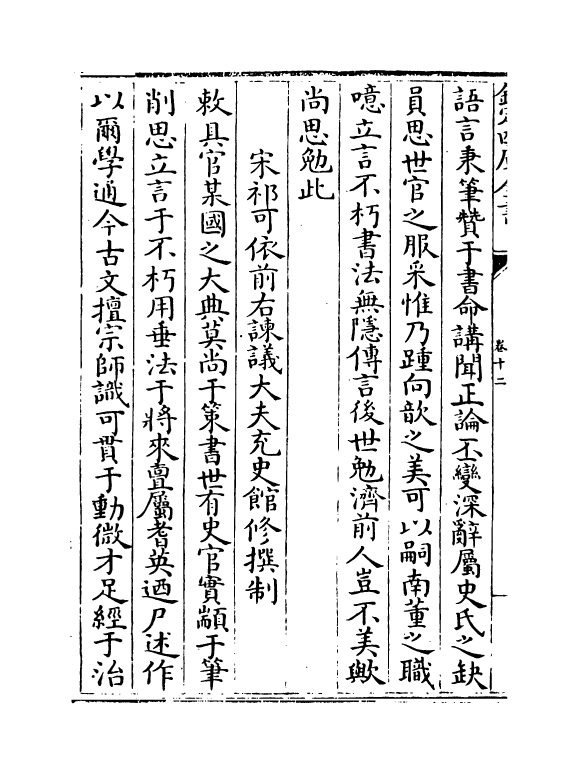 欽定四庫全書
卷十二
語言秉筆贊于書命講聞正論丕變深辭屬史氏之缺
員思世官之服采惟乃踵向歆之美可以嗣南董之職
噫立言不朽書法無隱傳言後世勉濟前人豈不美歟
尚思勉此
宋祁可依前右諫議大夫充史館修撰制
敕具官某國之大典莫尚于策書世有史官實顓于筆
削思立言于不朽用垂法于將來亶屬耆英迺尸述作
以爾學通今古文擅宗師識可貫于動微才足經于治